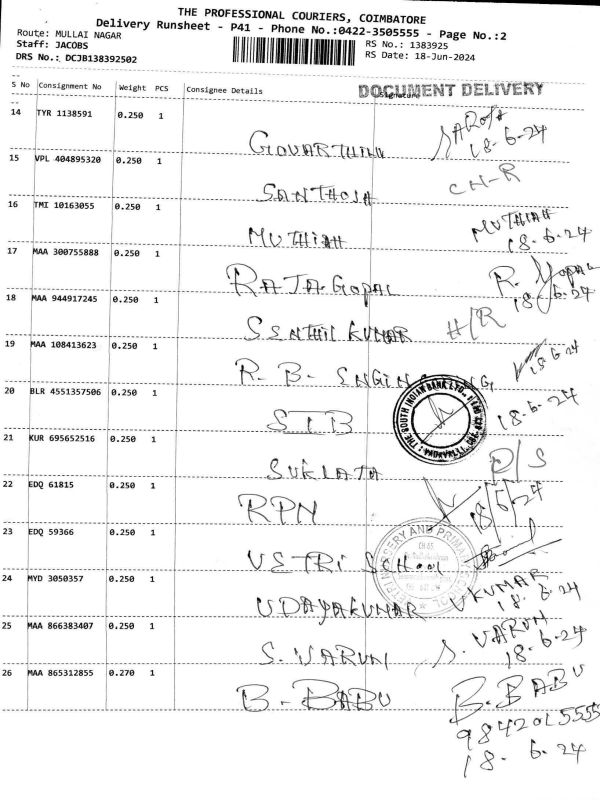 THE PROFESSIONAL COURIERS, COIMBATORE
Delivery Runsheet - P41 - Phone No.:0422-3505555 - Page No.:2
Route: MULLAI NAGAR
RS No.: 1383925
Staff: JACOBS
RS Date: 18-Jun-2024
DRS No.: DCJB138392502
DOCUMENT DELIVERY
S No Consignment No Weight PCS Consignee Details Signature
14 TYR 1138591 0.250 1
GOVARTHINI SAROJA
18-6-24
15 VPL 404895320 0.250 1
SANTHOSH CN-R
16 TMI 10163055 0.250 1
MUTHIAH MUTHIAH
18-6-24
17 MAA 300755888 0.250 1
RAJAGOPAL R. Gopal
18-6-24
18 MAA 944917245 0.250 1
SENTHIL KUMAR H/R
19 MAA 108413623 0.250 1
R. B. ENGINEERING 18-6-24
20 BLR 4551357506 0.250 1
SIB 18-6-24
THE SOUTH INDIAN BANK LTD.
VADAVALLI
21 KUR 695652516 0.250 1
SUKLATA D/S
22 EDQ 61815 0.250 1
RPN 18/6/24
23 EDQ 59366 0.250 1
VETRI SCHOOL
VETRI NURSERY AND PRIMARY SCHOOL
24 MYD 3050357 0.250 1
UDAYAKUMAR UKUMAR
18-6-24
25 MAA 866383407 0.250 1
S. VARUN S. VARUN
18-6-24
26 MAA 865312855 0.270 1
B. BABU B. BABU
9842015555
18-6-24